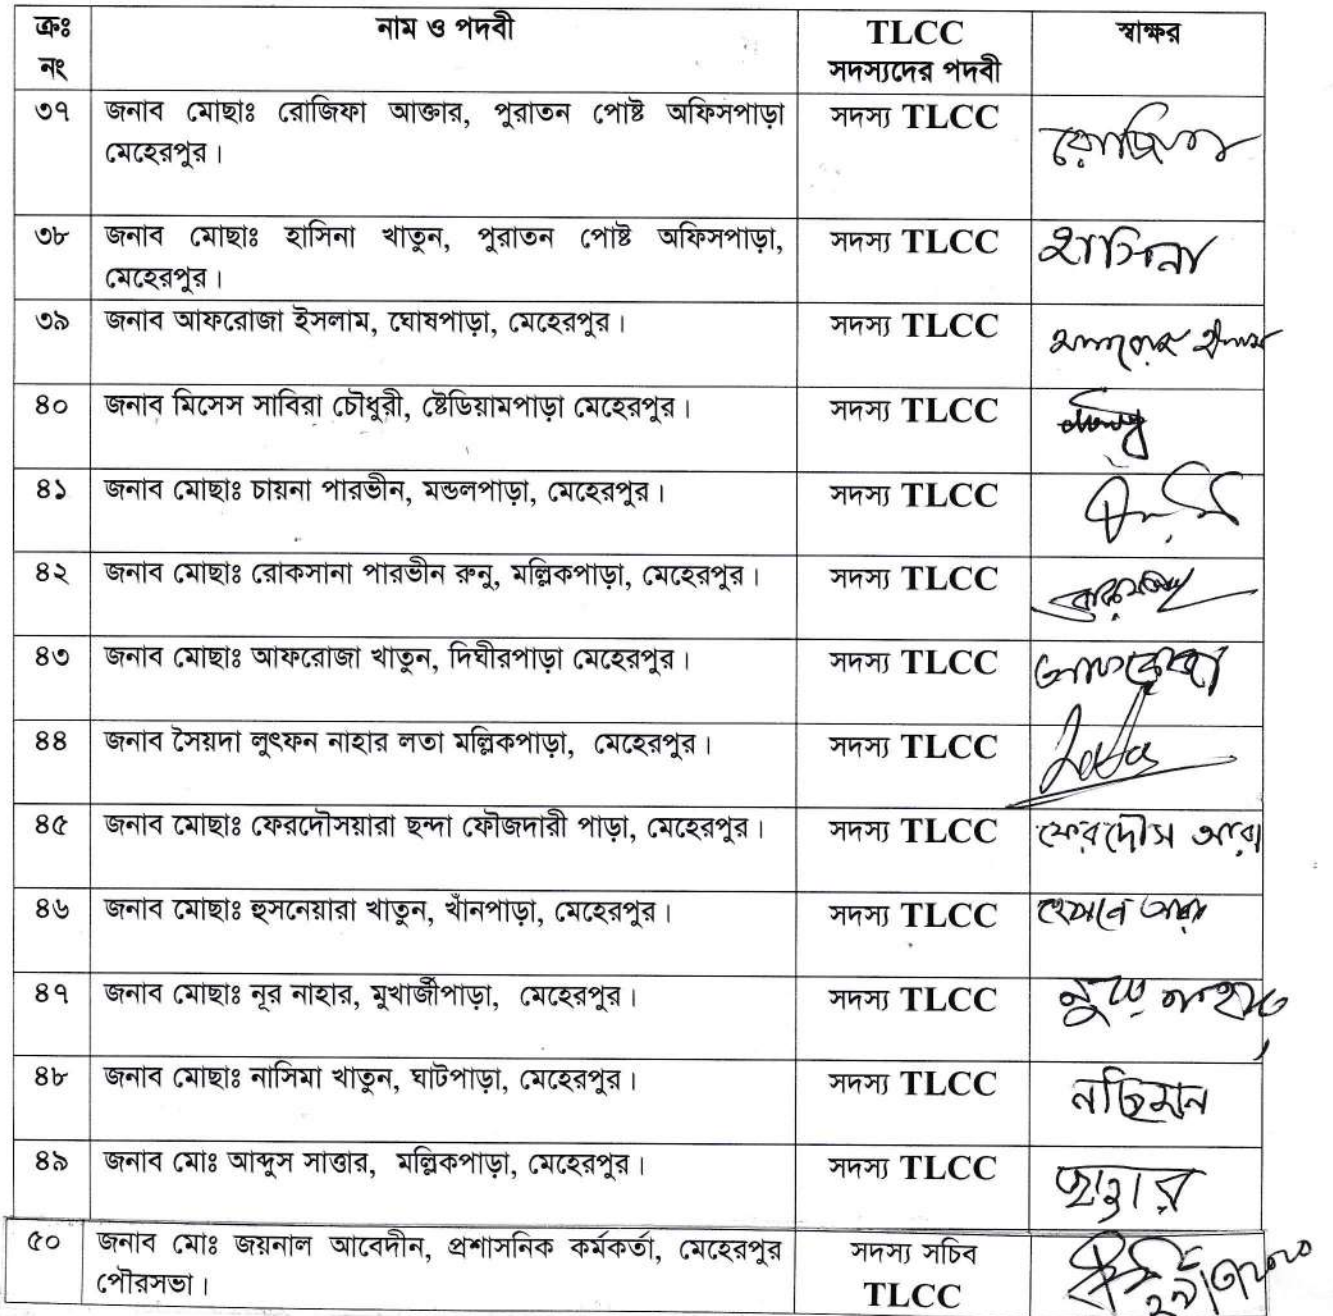 ক্রঃ নং	নাম ও পদবী	TLCC সদস্যদের পদবী	স্বাক্ষর
৩৭	জনাব মোছাঃ রোজিফা আক্তার, পুরাতন পোষ্ট অফিসপাড়া	সদস্য TLCC	রোজিফা
মেহেরপুর।
৩৮	জনাব মোছাঃ হাসিনা খাতুন, পুরাতন পোষ্ট অফিসপাড়া,	সদস্য TLCC	হাসিনা
মেহেরপুর।
৩৯	জনাব আফরোজা ইসলাম, ঘোষপাড়া, মেহেরপুর।	সদস্য TLCC
৪০	জনাব মিসেস সাবিরা চৌধুরী, ষ্টেডিয়ামপাড়া মেহেরপুর।	সদস্য TLCC
৪১	জনাব মোছাঃ চায়না পারভীন, মন্ডলপাড়া, মেহেরপুর।	সদস্য TLCC
৪২	জনাব মোছাঃ রোকসানা পারভীন রুনু, মল্লিকপাড়া, মেহেরপুর।	সদস্য TLCC
৪৩	জনাব মোছাঃ আফরোজা খাতুন, দিঘীরপাড়া মেহেরপুর।	সদস্য TLCC	আফরোজা
৪৪	জনাব সৈয়দা লুৎফন নাহার লতা মল্লিকপাড়া, মেহেরপুর।	সদস্য TLCC	Lata
৪৫	জনাব মোছাঃ ফেরদৌসয়ারা ছন্দা ফৌজদারী পাড়া, মেহেরপুর।	সদস্য TLCC	ফেরদৌস আরা
৪৬	জনাব মোছাঃ হুসনেয়ারা খাতুন, খাঁনপাড়া, মেহেরপুর।	সদস্য TLCC
৪৭	জনাব মোছাঃ নূর নাহার, মুখার্জীপাড়া, মেহেরপুর।	সদস্য TLCC
৪৮	জনাব মোছাঃ নাসিমা খাতুন, ঘাটপাড়া, মেহেরপুর।	সদস্য TLCC	নাছিমান
৪৯	জনাব মোঃ আব্দুস সাত্তার, মল্লিকপাড়া, মেহেরপুর।	সদস্য TLCC	ছাত্তার
৫০	জনাব মোঃ জয়নাল আবেদীন, প্রশাসনিক কর্মকর্তা, মেহেরপুর	সদস্য সচিব
পৌরসভা।	TLCC